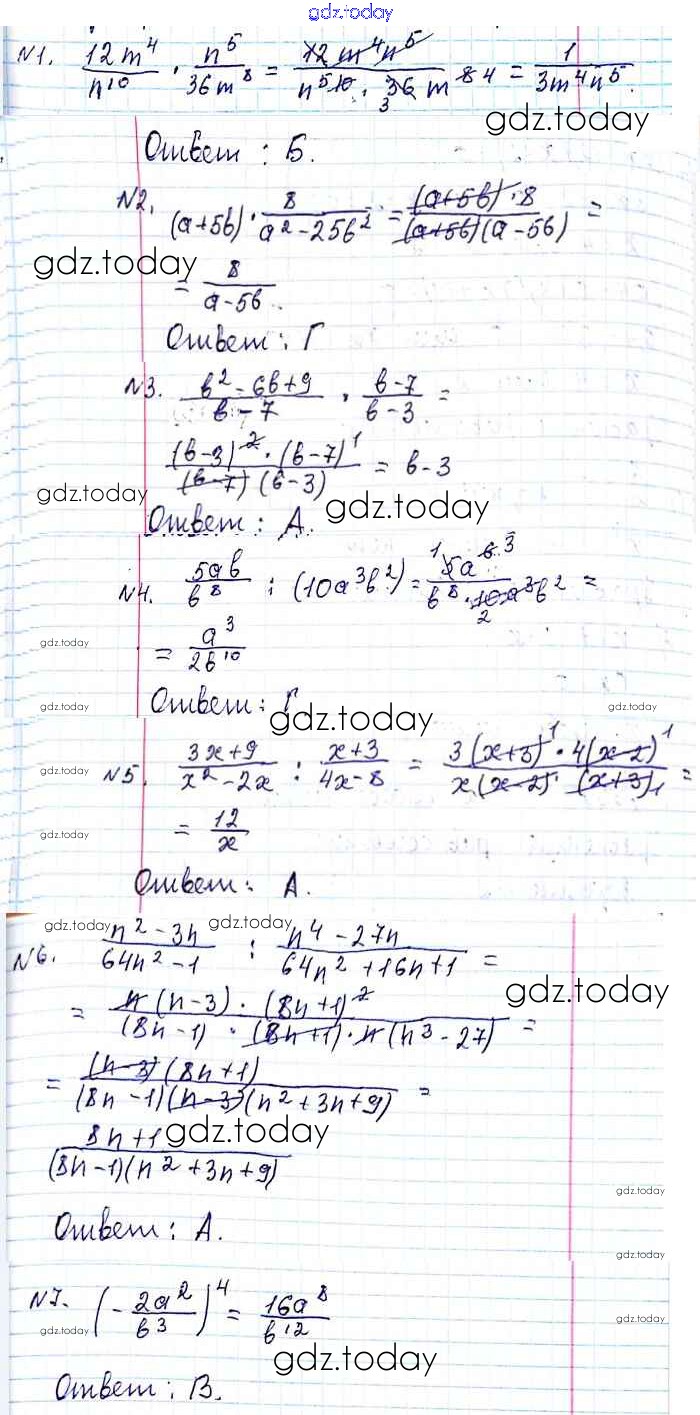 gdz.today
N1. 12m⁴/n¹⁰ · n⁵/36m⁸ = 12m⁴n⁵/n⁵ ¹⁰ · ₃36m ⁸ ⁴ = 1/3m⁴n⁵.
gdz.today
Ответ : Б.
N2. (a+5b) · 8/a²-25b² = (a+5b)·8/(a+5b)(a-5b) =
gdz.today
= 8/a-5b.
Ответ : Г
N3. b²-6b+9/b-7 · b-7/b-3 =
(b-3)²·(b-7)¹/(b-7)(b-3) = b-3
gdz.today gdz.today
Ответ : А.
N4. 5ab/b⁸ : (10a³b²) = ¹5a ⁶·³/b⁸·₂10a³b² =
gdz.today
= a³/2b¹⁰
gdz.today
Ответ : Г gdz.today
N5. 3x+9/x²-2x : x+3/4x-8 = 3(x+3)¹·4(x-2)¹/x(x-2) (x+3)₁ =
gdz.today
gdz.today
= 12/x
Ответ : А.
gdz.today gdz.today
N6. n²-3n/64n²-1 : n⁴-27n/64n²+16n+1 =
gdz.today
= n(n-3)·(8n+1)²/(8n-1)·(8n+1)·n(n³-27) =
= (n-3)(8n+1)/(8n-1)(n-3)(n²+3n+9) =
gdz.today
8n+1/(8n-1)(n²+3n+9)
gdz.today
Ответ : А.
gdz.today
N7. (-2a²/b³)⁴ = 16a⁸/b¹²
gdz.today gdz.today
gdz.today
Ответ : В.